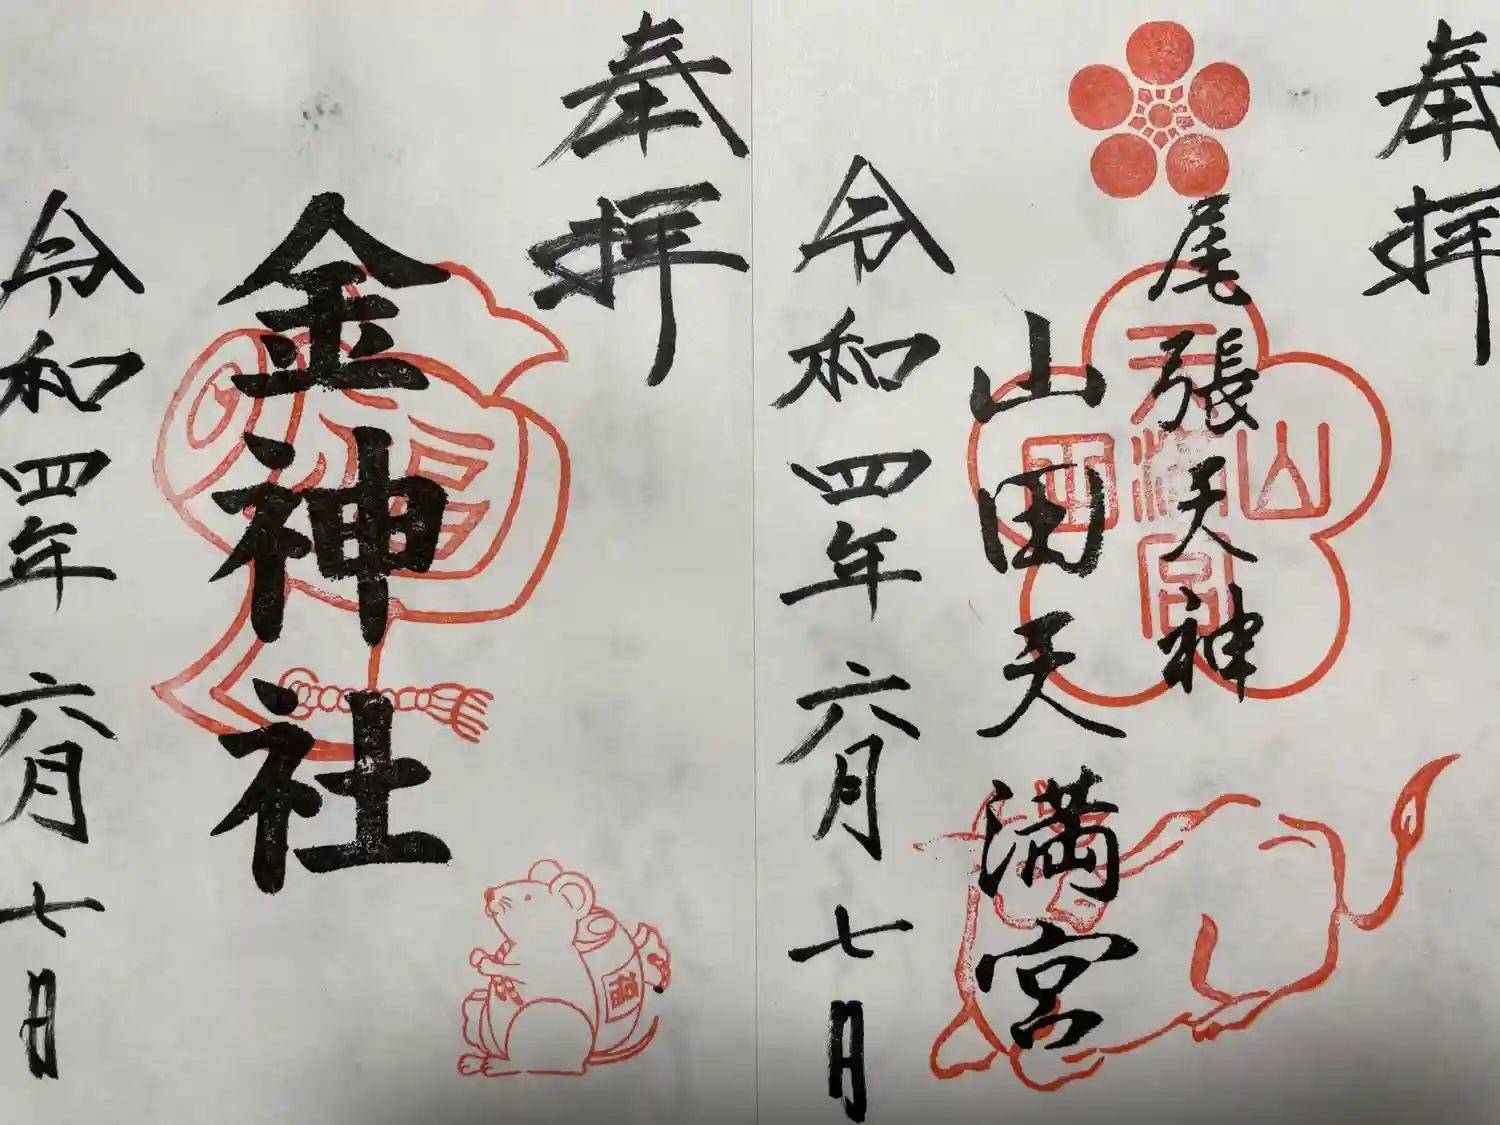 奉拝
尾張天神
山田天満宮
令和四年六月七日
山田天満宮
奉拝
金神社
令和四年六月七日
福
福